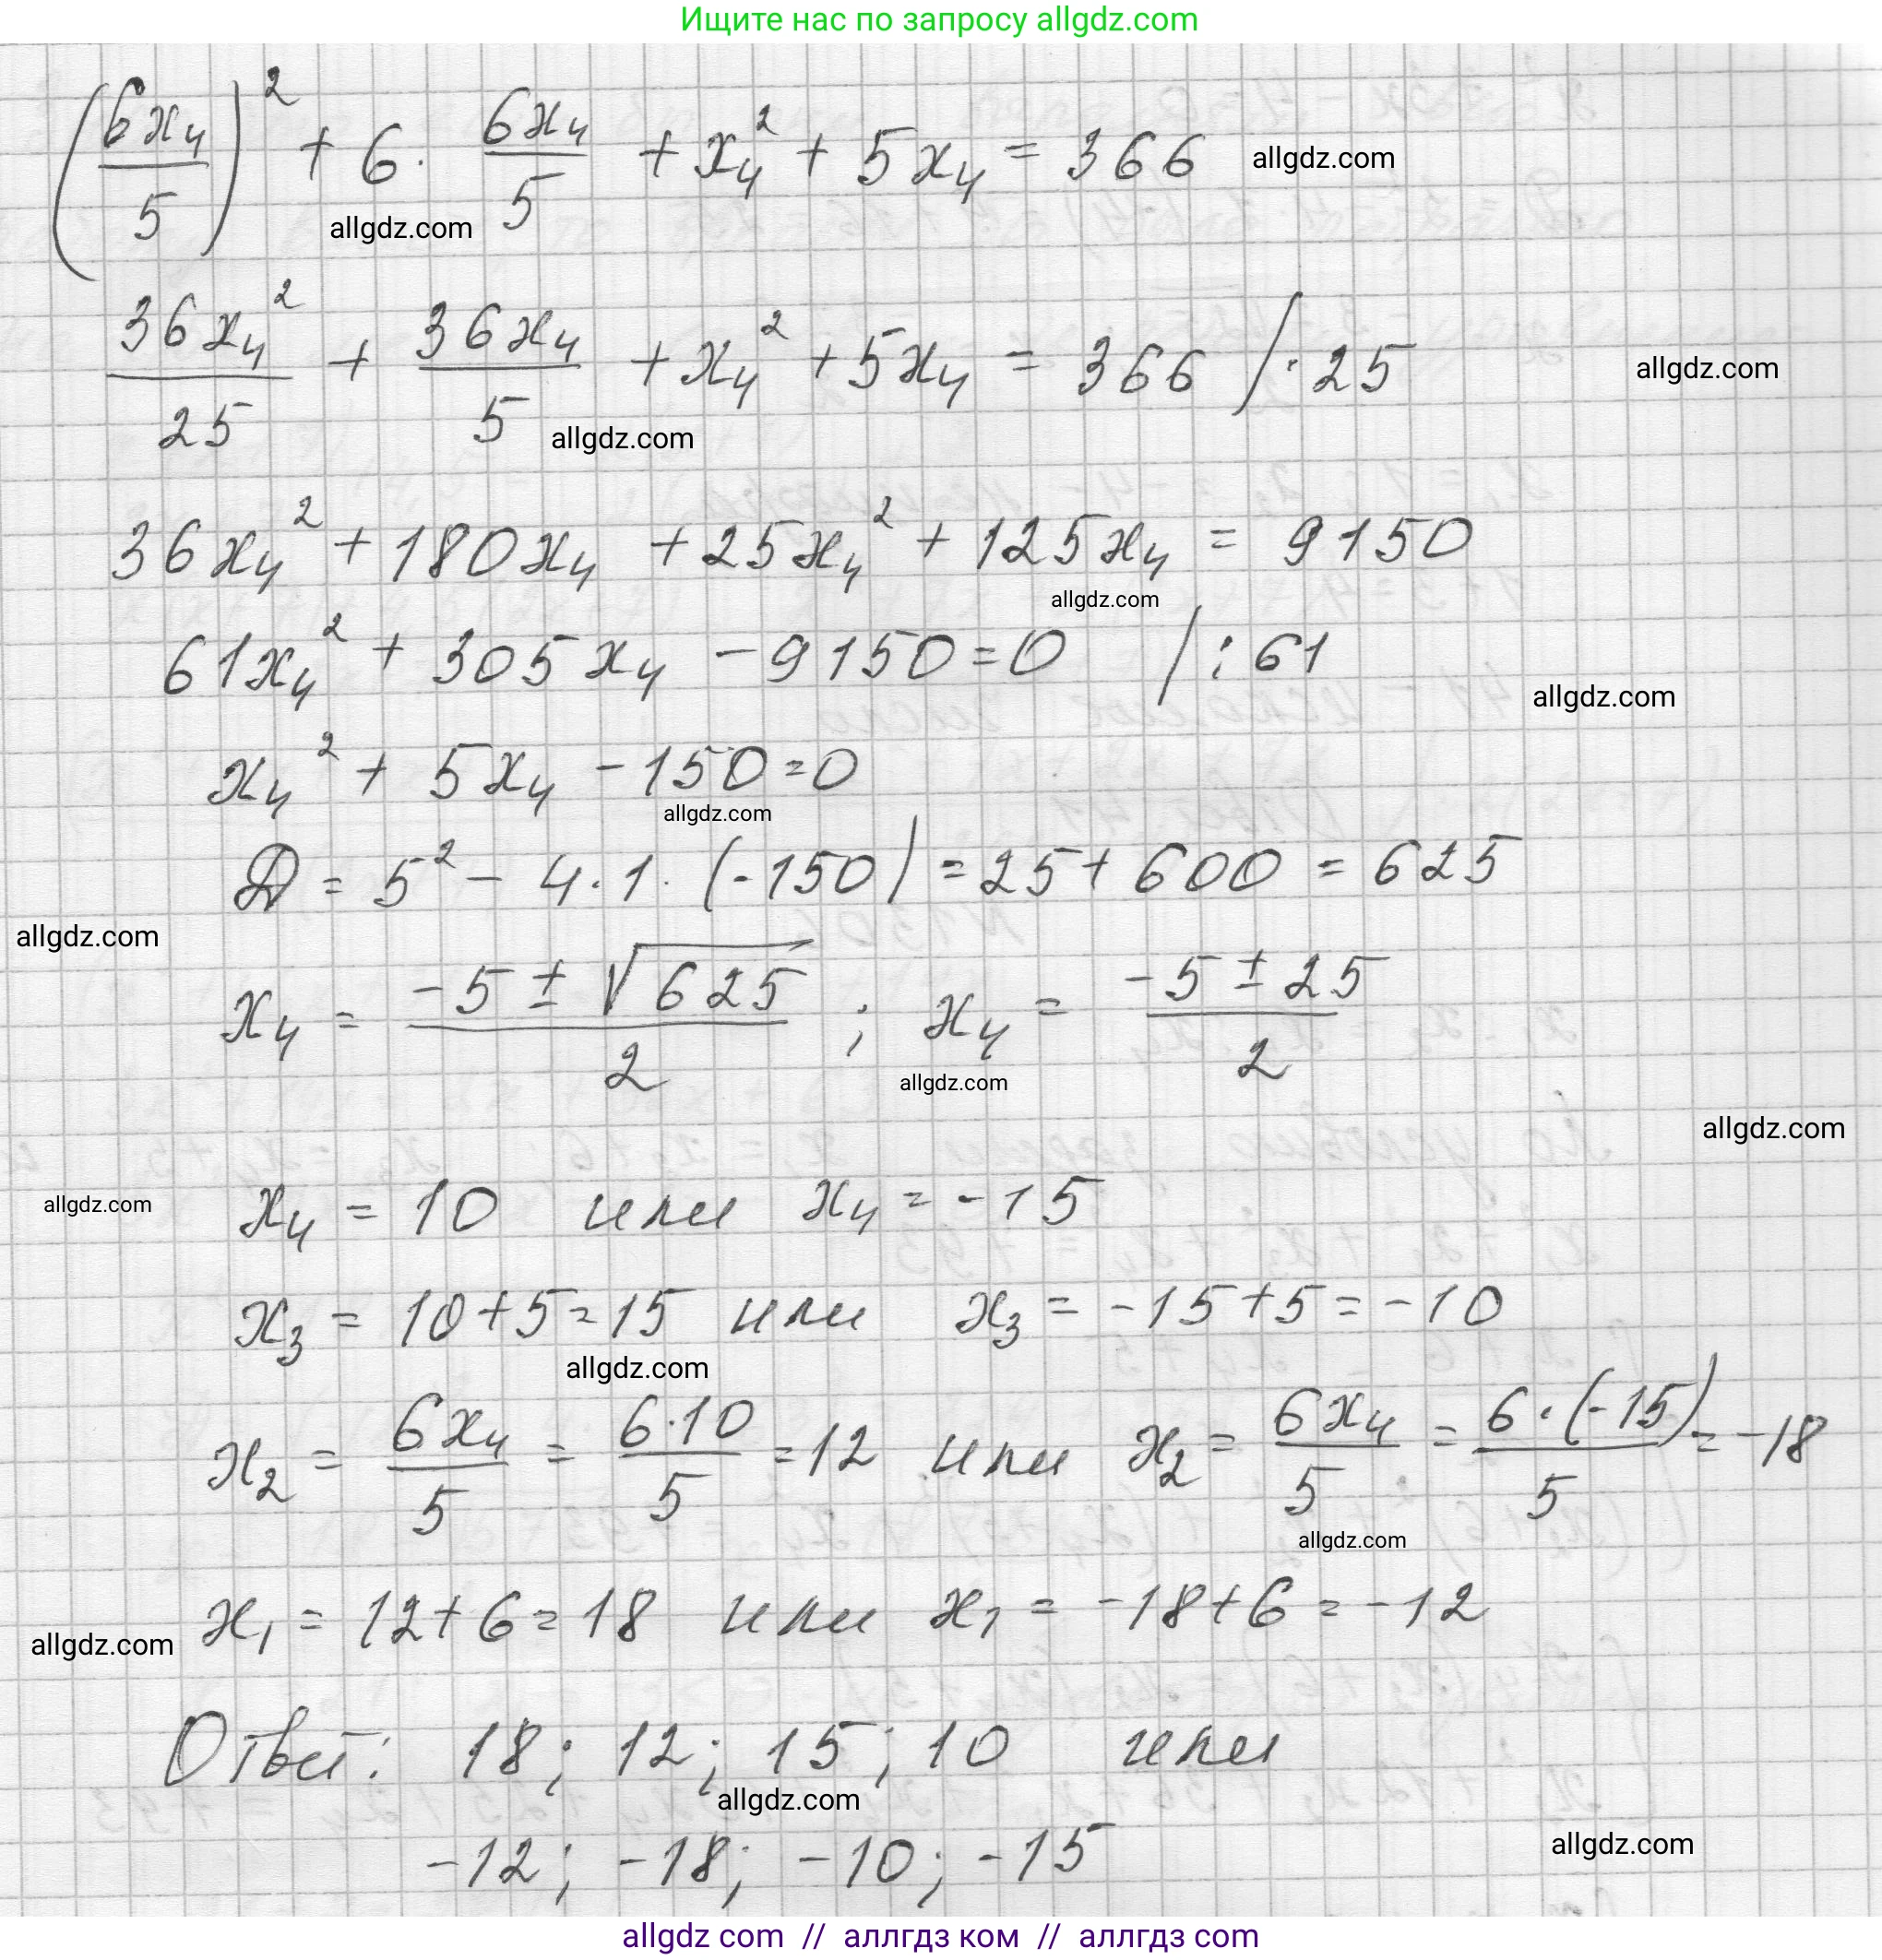 Ищите нас по запросу allgdz.com
(6x₄/5)² + 6 · 6x₄/5 + x₄² + 5x₄ = 366 allgdz.com
allgdz.com
36x₄²/25 + 36x₄/5 + x₄² + 5x₄ = 366 / · 25 allgdz.com
allgdz.com
36x₄² + 180x₄ + 25x₄² + 125x₄ = 9150
allgdz.com
61x₄² + 305x₄ - 9150 = 0 / : 61
allgdz.com
x₄² + 5x₄ - 150 = 0
allgdz.com
D = 5² - 4 · 1 · (-150) = 25 + 600 = 625
allgdz.com
x₄ = (-5 ± √625)/2 ; x₄ = (-5 ± 25)/2
allgdz.com
allgdz.com
allgdz.com x₄ = 10 или x₄ = -15
x₃ = 10 + 5 = 15 или x₃ = -15 + 5 = -10
allgdz.com
x₂ = 6x₄/5 = 6·10/5 = 12 или x₂ = 6x₄/5 = 6·(-15)/5 = -18
allgdz.com
x₁ = 12 + 6 = 18 или x₁ = -18 + 6 = -12
allgdz.com
Ответ: 18; 12; 15; 10 или
allgdz.com
-12; -18; -10; -15
allgdz.com
allgdz com // аллгдз ком // аллгдз com